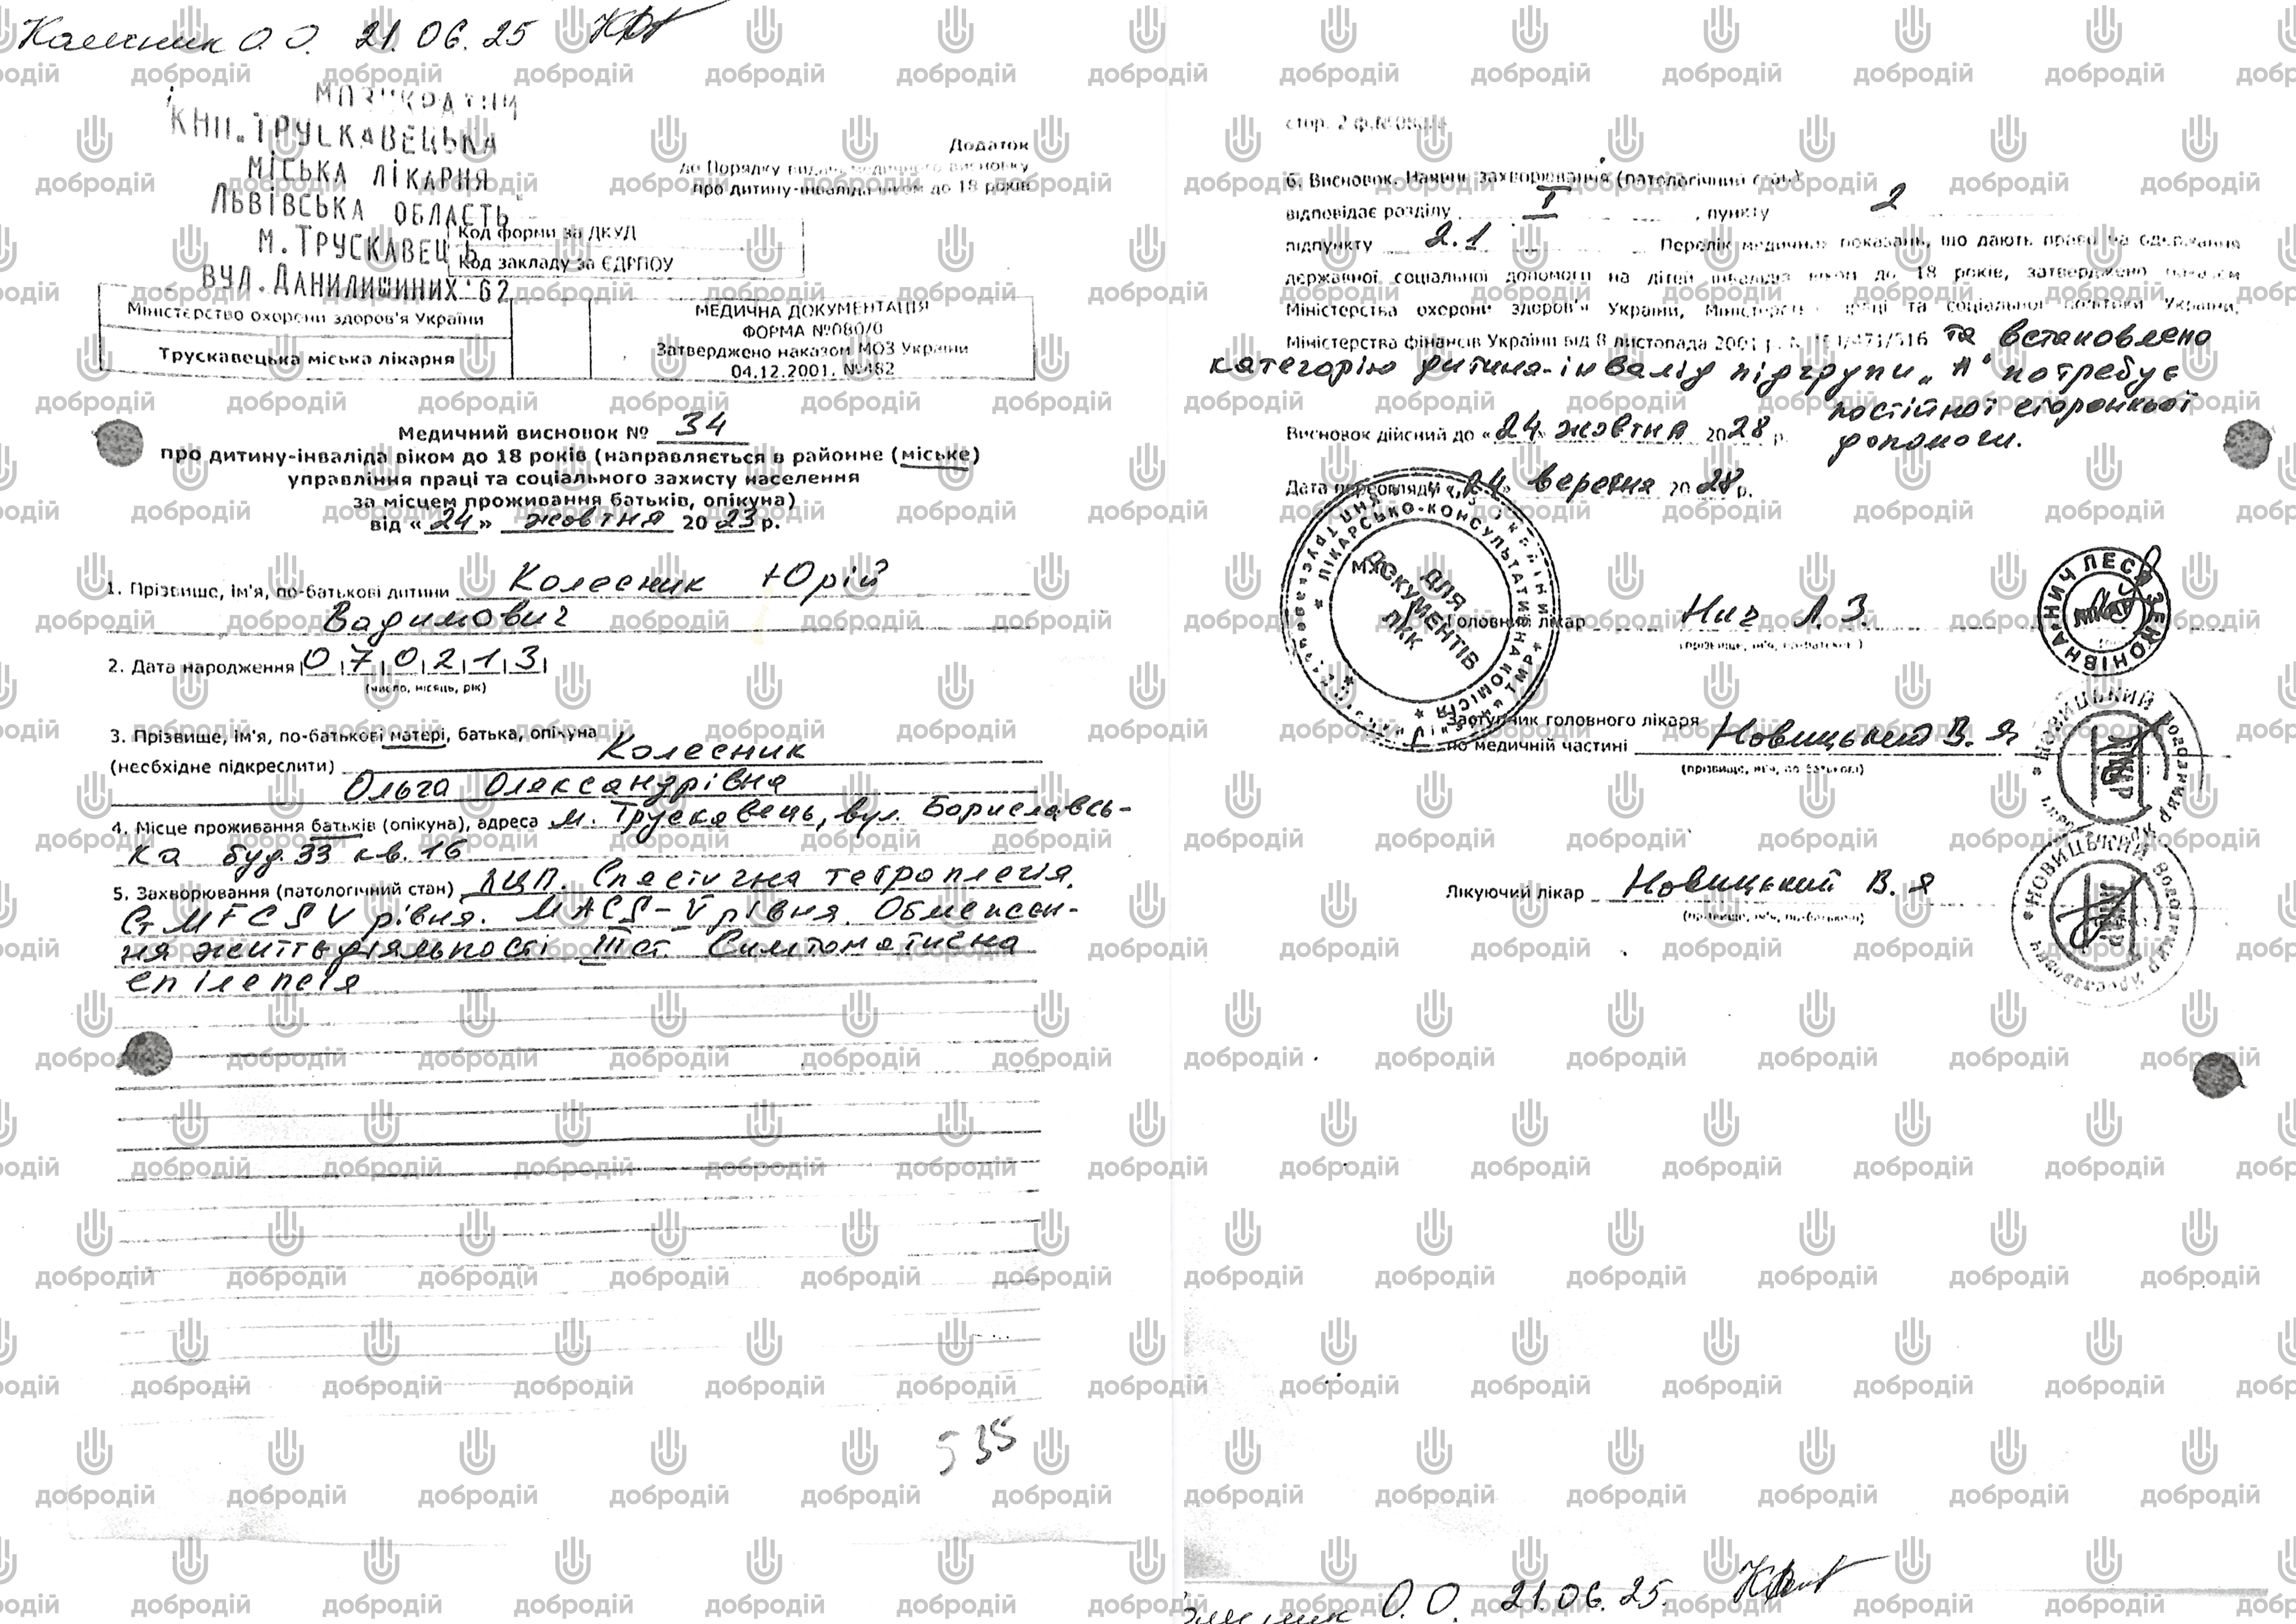 Колесник О.О. 21.06.25
МОЗ УКРАЇНИ
КНП „ТРУСКАВЕЦЬКА
МІСЬКА ЛІКАРНЯ"
ЛЬВІВСЬКА ОБЛАСТЬ
М. ТРУСКАВЕЦЬ
ВУЛ. ДАНИЛИШИНИХ 62
Додаток
до Порядку видачі медичного висновку
про дитину-інваліда віком до 18 років
Код форми за ДКУД
Код закладу за ЄДРПОУ
Міністерство охорони здоров'я України
Трускавецька міська лікарня
МЕДИЧНА ДОКУМЕНТАЦІЯ
ФОРМА №080/0
Затверджено наказом МОЗ України
04.12.2001. №482
Медичний висновок № 34
про дитину-інваліда віком до 18 років (направляється в районне (міське)
управління праці та соціального захисту населення
за місцем проживання батьків, опікуна)
від «24» жовтня 2023 р.
1. Прізвище, ім'я, по-батькові дитини Колесник Юрій
Вадимович
2. Дата народження |0|7|0|2|1|3|
(число, місяць, рік)
3. Прізвище, ім'я, по-батькові матері, батька, опікуна
(необхідне підкреслити) Колесник
Ольга Олександрівна
4. Місце проживання батьків (опікуна), адреса м. Трускавець, вул. Бориславсь-
ка буд. 33 кв. 16
5. Захворювання (патологічний стан) ДЦП. Спастична тетраплегія.
GMFCS V рівня. MACS-V рівня. Обмежен-
ня життєдіяльності III ст. Симптоматична
епілепсія
535
стор. 2 ф.№080/0
6. Висновок. Наявне захворювання (патологічний стан)
відповідає розділу I, пункту 2
підпункту 2.1 Перелік медичних показань, що дають право на одержання
державної соціальної допомоги на дітей інвалідів віком до 18 років, затверджено наказом
Міністерства охорони здоров'я України, Міністерства праці та соціальної політики України,
Міністерства фінансів України від 8 листопада 2001 р. № 454/471/516 та встановлено
категорію дитина-інвалід підгрупи „А" потребує
постійної сторонньої
допомоги.
Висновок дійсний до «24» жовтня 2028 р.
Дата переогляду «24» вересня 2028 р.
ЛІКАРСЬКО-КОНСУЛЬТАТИВНА КОМІСІЯ
ДЛЯ
ДОКУМЕНТІВ
ЛКК
Головний лікар Нич Л.З.
(прізвище, ім'я, по-батькові)
НИЧ ЛЕСЯ ЗЕНОНІВНА
Заступник головного лікаря
по медичній частині Новицький В. Я
(прізвище, ім'я, по-батькові)
НОВИЦЬКИЙ Володимир Ярославович
Лікар
Лікуючий лікар Новицький В. Я
(прізвище, ім'я, по-батькові)
НОВИЦЬКИЙ Володимир Ярославович
Лікар
Колесник О.О. 21.06.25.
добродій